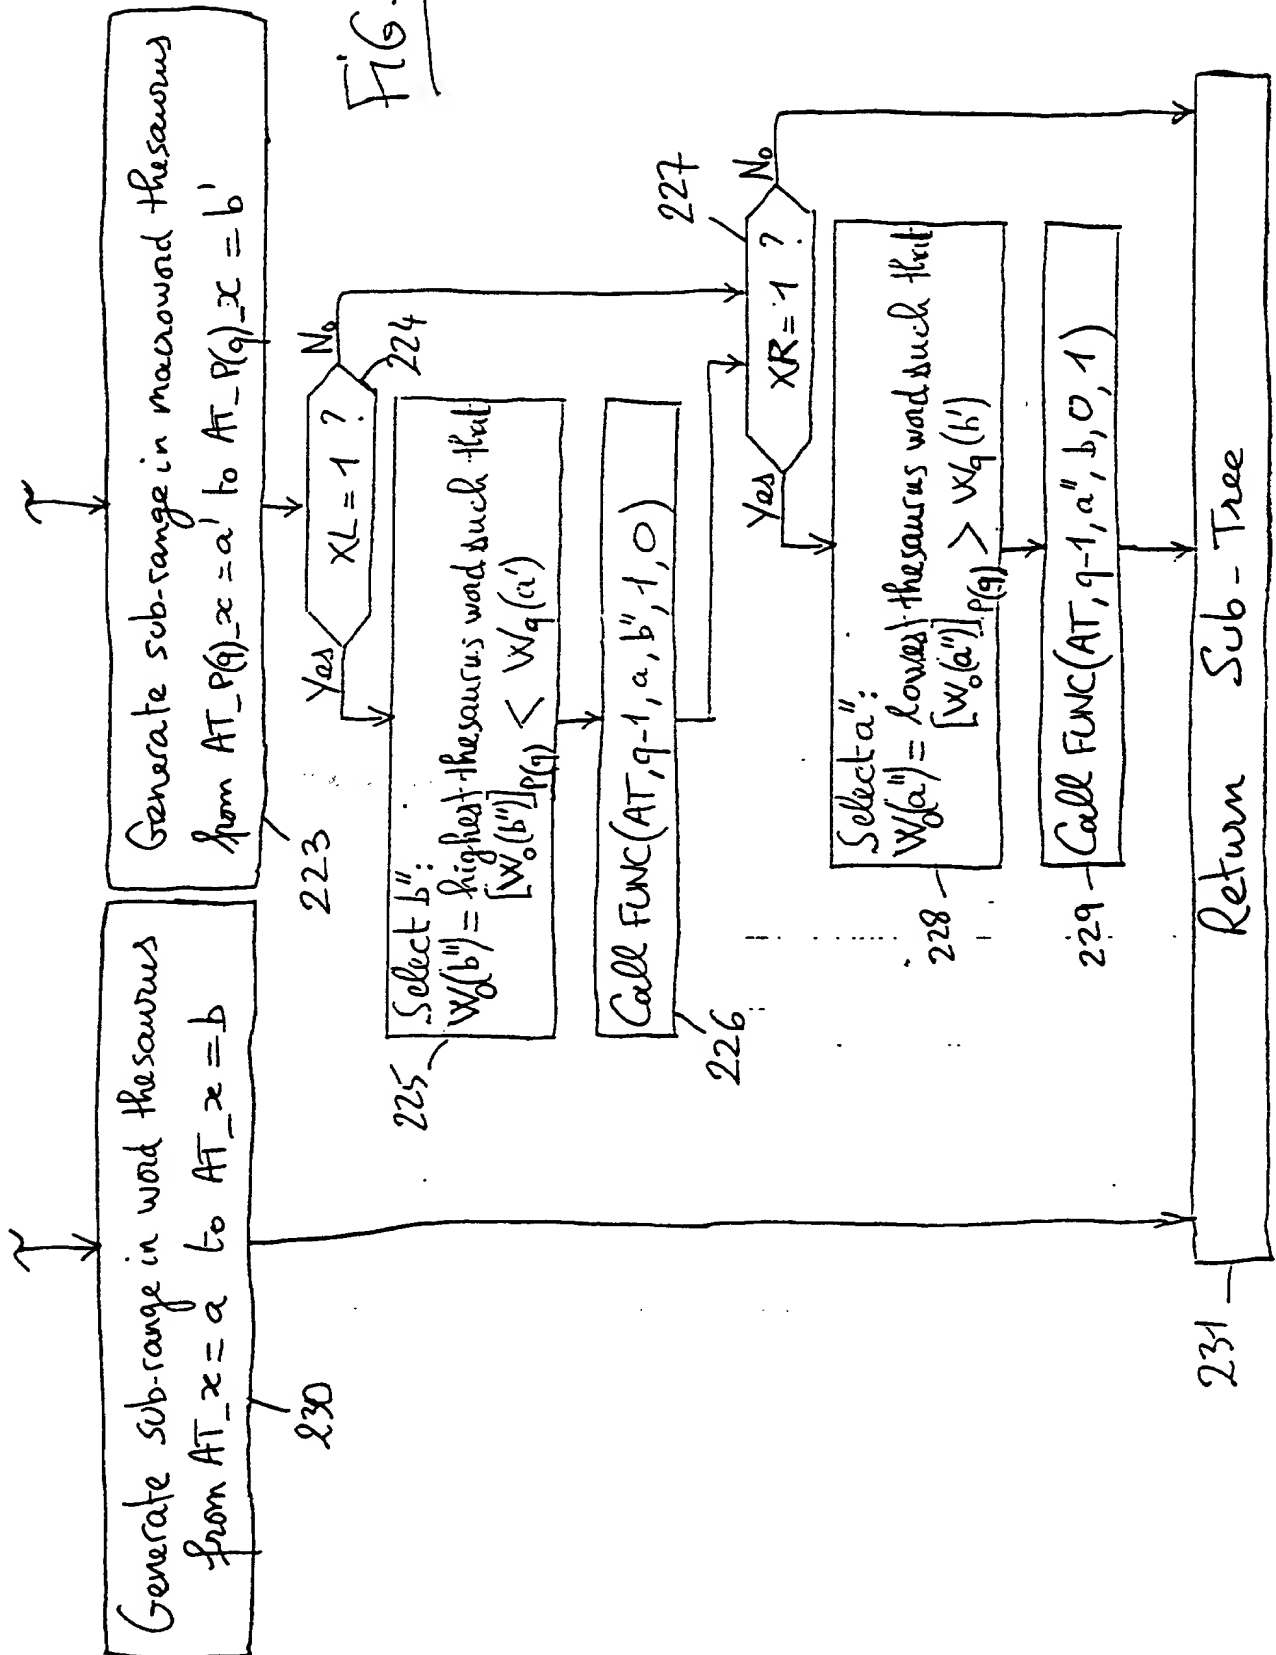 Generate sub-range in word thesaurus
from AT_x = a to AT_x = b
230
Generate sub-range in macroword thesaurus
from AT_P(q)_x = a' to AT_P(q)_x = b'
223
FIG.
XL = 1 ?
224
Yes
No
Select b'':
W₀(b'') = highest thesaurus word such that
[W₀(b'')]P(q) < Wq(a')
225
Call FUNC(AT, q-1, a, b'', 1, 0)
226
XR = 1 ?
227
Yes
No
Select a'':
W₀(a'') = lowest thesaurus word such that
[W₀(a'')]P(q) > Wq(b')
228
Call FUNC(AT, q-1, a'', b, 0, 1)
229
Return Sub-Tree
231